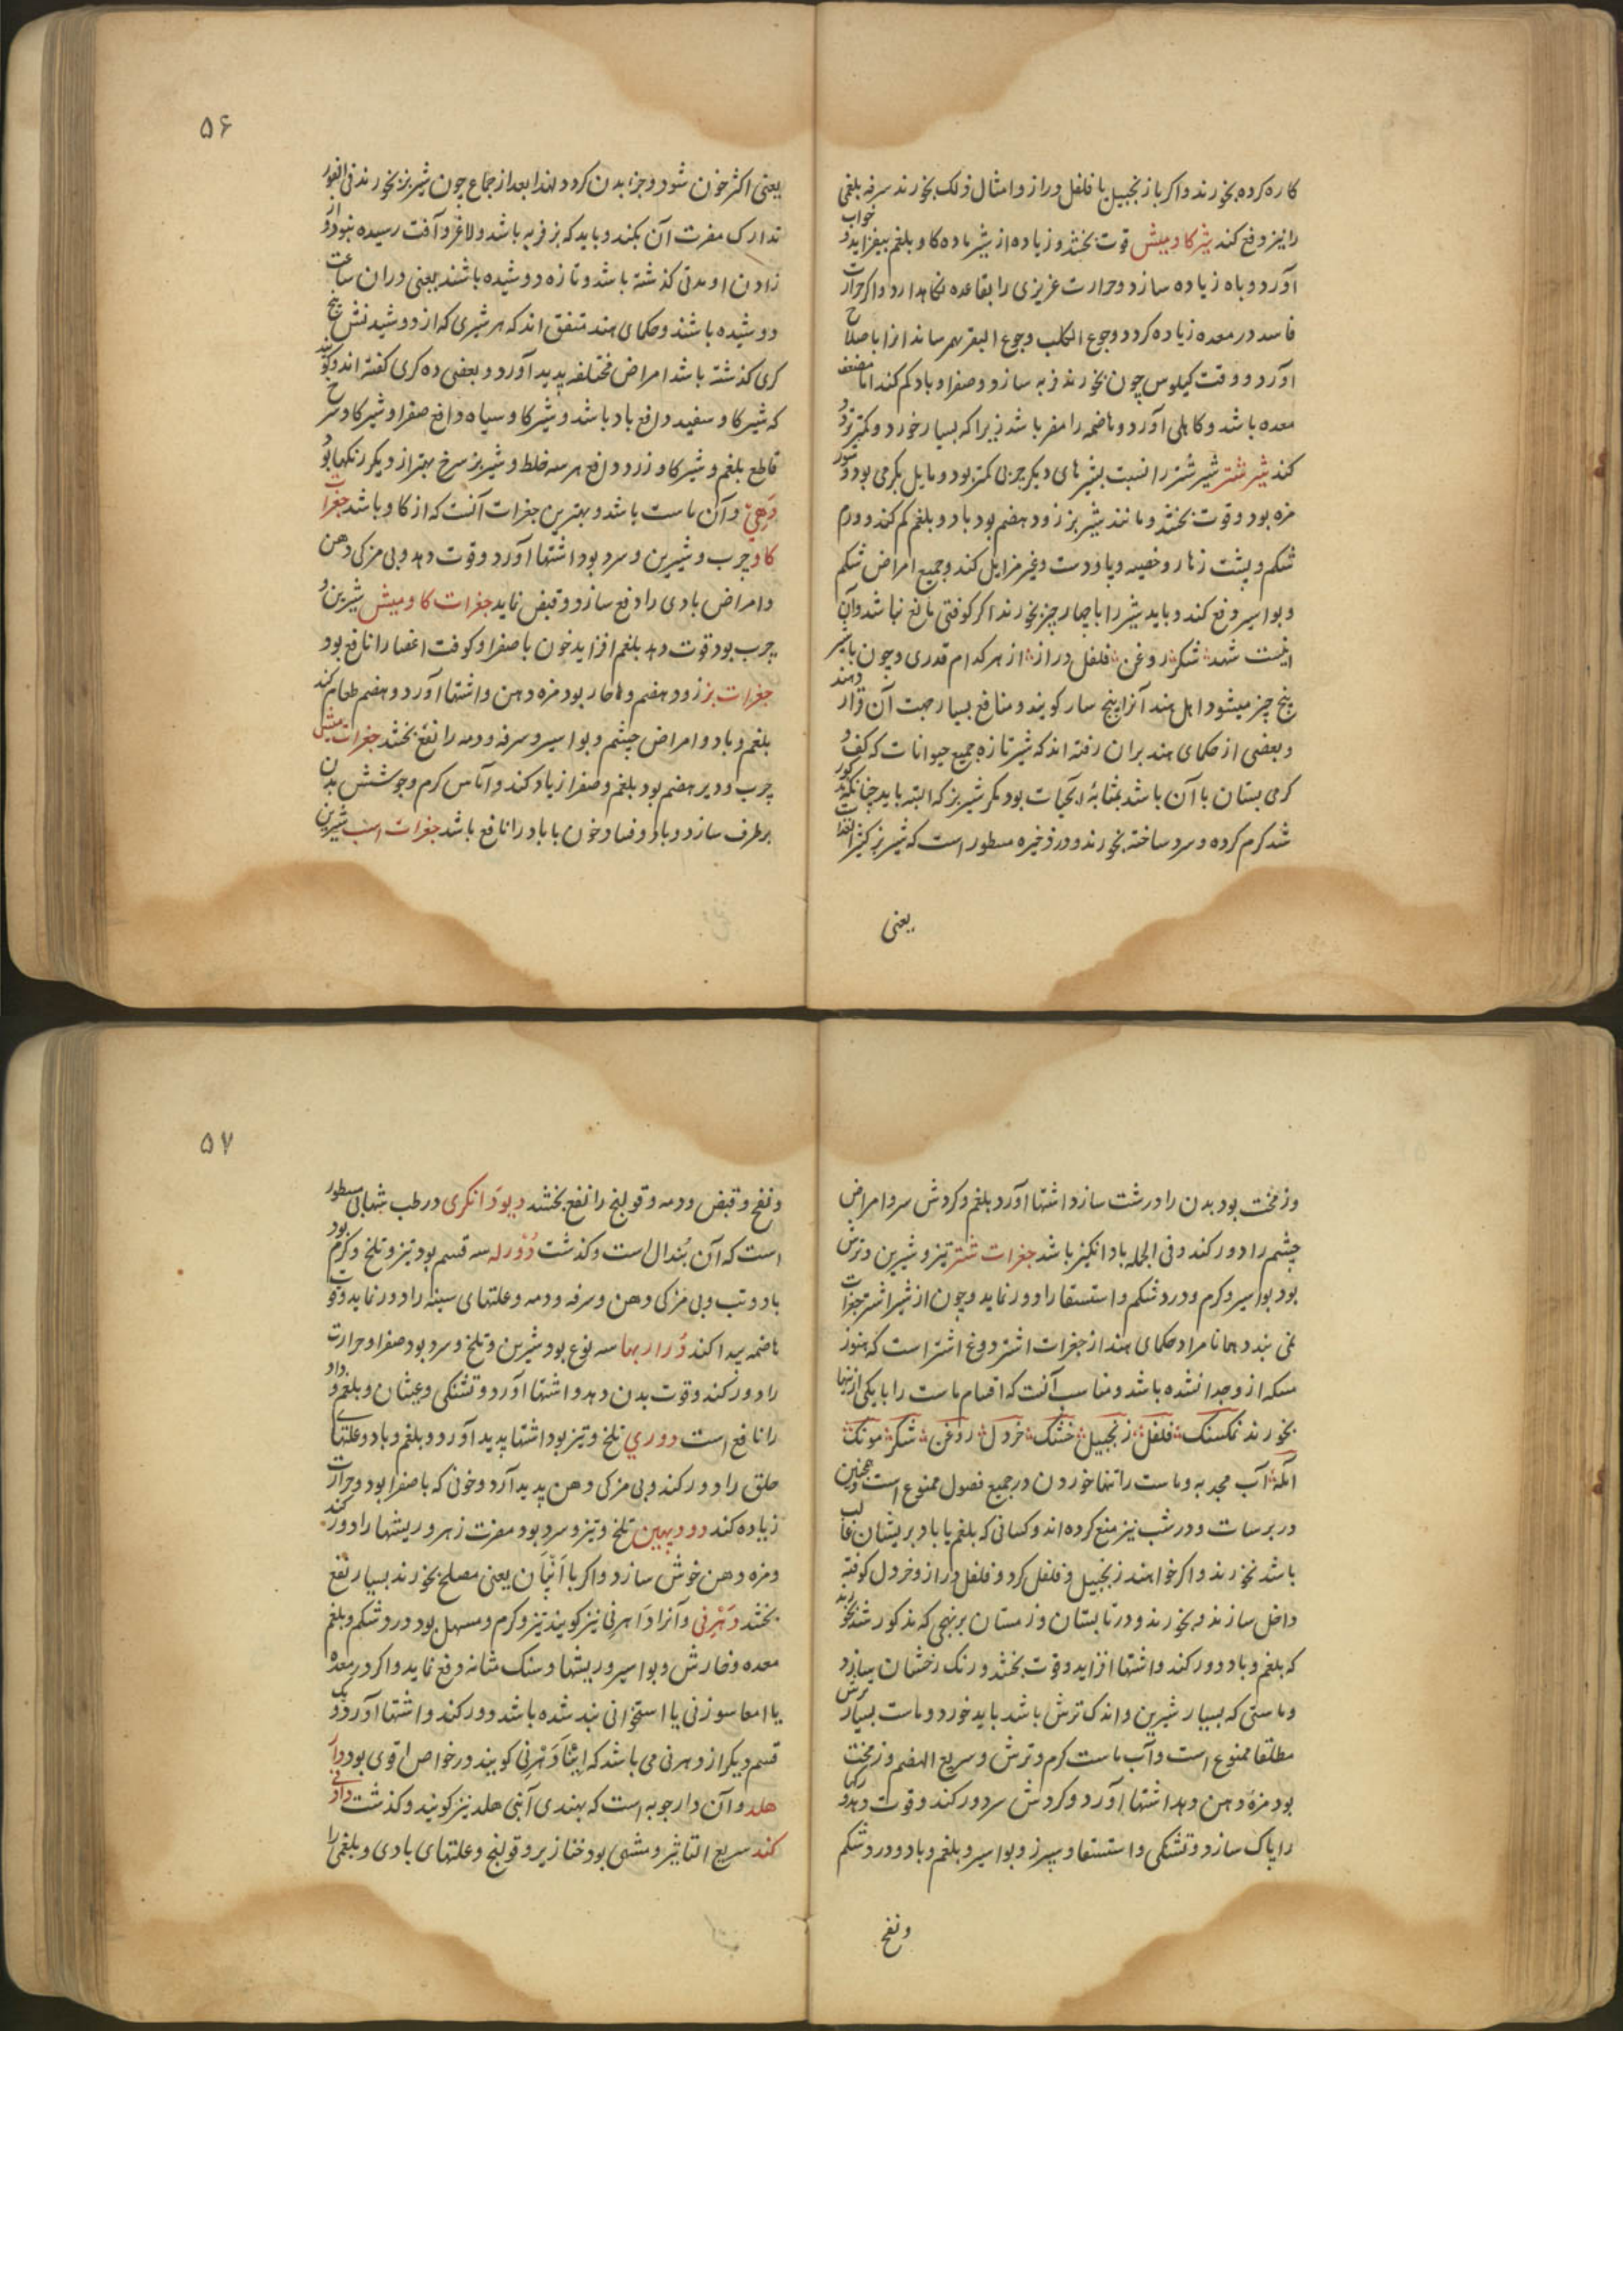 کاره کرده بخورند و اکر با زنجبیل یا فلفل دراز و امثال ذلک بخورند سرفه بلغمی
را نیز دفع کند شیر کاومیش قوت بخشد و زیاده از شیر ماده کاو بلغم بیفزاید و خواب
آورد و باه زیاده سازد و حرارت غریزی را بقاعده نکاهدارد و اکر حرارت
فاسد در معده زیاده کردد و جوع الکلب و جوع البقر بهم رساند آنرا باصلاح
آورد و وقت کیلوس چون بخورند فربه سازد و صفرا و باد کم کند اما مضعف
معده باشد و کاهلی آورد و هاضمه را مضر باشد زیرا که بسیار خورد و کمتر تردد
کند شیر شتر شیر شتر را نسبت بشیرهای دیکر چربی کمتر بود و مایل بکرمی بود و شور
مزه بود و قوت بخشد و مانند شیر بز زود هضم بود باد و بلغم کم کند و ورم
شکم و پشت زهار و خصیه و پا و دست و غیره زایل کند و جمیع امراض شکم
و بواسیر دفع کند و باید شیر را با چهار چیز بخورند اکر کوفتی مانع نباشد و آن
اینست شهد شکر روغن فلفل دراز از هر کدام قدری و چون با شیر
پنج چیز میشود اهل هند آنرا پنج سار کویند و منافع بسیار جهت آن قرار دهند
و بعضی از حکمای هند بران رفته اند که شیر تازه جمیع حیوانات که کف و
کرمی پستان با آن باشد بمثابهٔ آبحیات بود مکر شیر بز که البته باید چنانکه مذکور
شد کرم کرده و سرد ساخته بخورند و در ذخیره مسطور است که شیر بز کثیر الغذا
یعنی
۵۶
یعنی اکثر خون شود و جزء بدن کردد لهذا بعد از جماع چون شیر بز بخورند فی الفور
تدارک مضرت آن بکند و باید که بز فربه باشد و لاغر و آفت رسیده نبود و از
زادن او مدتی کذشته باشد و تازه دوشیده باشند یعنی دران ساعت
دوشیده باشند و حکمای هند متفق اند که هر شیری که از دوشیدنش پنج
کری کذشته باشد امراض مختلفه پدید آورد و بعضی ده کری کفته اند و کویند
که شیر کاو سفید دافع باد باشد و شیر کاو سیاه دافع صفرا و شیر کاو سرخ
قاطع بلغم و شیر کاو زرد دافع هر سه خلط و شیر بز سرخ بهتر از دیکر رنکها بود
دَهِی و آن ماست باشد و بهترین جغرات آنست که از کاو باشد جغرات
کاو چرب و شیرین و سرد بود اشتها آورد و قوت دهد و بی مزکی دهن
و امراض بادی را دفع سازد و قبض نماید جغرات کاومیش شیرین و
چرب بود قوت دهد بلغم افزاید خون با صفرا و کوفت اعضا را نافع بود
جغرات بز زود هضم و حار بود مزه دهن و اشتها آورد و هضم طعام کند
بلغم و باد و امراض چشم و بواسیر و سرفه و دمه را نفع بخشد جغرات میش
چرب و دیر هضم بود بلغم و صفرا زیاد کند و آماس کرم و جوشش بدن
برطرف سازد و باد و فساد خون با باد را نافع باشد جغرات اسب شیرین
و زمخت بود بدن را درشت سازد اشتها آورد بلغم و کردش سر و امراض
چشم را دور کند و فی الجمله بادانکیز باشد جغرات شتر تیز و شیرین و ترش
بود بواسیر و کرم و درد شکم و استسقا را دور نماید و چون از شیر اشتر جغرات
نمی بندد همانا مراد حکمای هند از جغرات اشتر دوغ اشتر است که هنوز
مسکه ازو جدا نشده باشد و مناسب آنست که اقسام ماست را با یکی ازینها
بخورند نمکسنک فلفل زنجبیل خشک خردل روغن شکر مونک
آمله آب مجد به و ماست را تنها خوردن در جمیع فصول ممنوع است و همچنین
در برسات و در شب نیز منع کرده اند و کسانی که بلغم یا باد بریشان غالب
باشد نخورند و اکر خواهند زنجبیل و فلفل کرد و فلفل دراز و خردل کوفته
داخل سازند و بخورند و در تابستان و زمستان بر نهجی که مذکور شد بخورند
که بلغم و باد دور کند و اشتها افزاید و قوت بخشد و رنک رخشان سازد
و ماستی که بسیار شیرین و اندک ترش باشد باید خورد و ماست بسیار ترش
مطلقا ممنوع است و آب ماست کرم و ترش و سریع الهضم و زمخت
بود مزهٔ دهن دهد اشتها آورد و کردش سر دور کند و قوت دهد و رکها
را پاک سازد و تشنکی و استسقا و سپرز و بواسیر و بلغم و باد و درد شکم
و نفخ
۵۷
و نفخ و قبض و دمه و قولنج را نفع بخشد دیودانکری در طب شهابی مسطور
است که آن بُندال است و کذشت دُوْرله سه قسم بود تیز و تلخ و کرم بود
باد و تب و بی مزکی دهن و سرفه و دمه و علتهای سینه را دور نماید و قوت
هاضمه پیدا کند دُراربها سه نوع بود شیرین و تلخ و سرد بود صفرا و حرارت
را دور کند و قوت بدن دهد و اشتها آورد و تشنکی و غثیان و بلغم و داد
را نافع است دوری تلخ و تیز بود اشتها پدید آورد و بلغم و باد و علتهای
حلق را دور کند و بی مزکی دهن پدید آرد و خونی که با صفرا بود و حرارت
زیاده کند دودپهین تلخ و تیز و سرد بود مضرت زهر و ریشها را دور کند
و مزه دهن خوش سازد و اکر با اَنُپان یعنی مصلح بخورند بسیار نفع
بخشد دَهْرنی و آنرا دَاهرنی نیز کویند تیز و کرم و مسهل بود درد شکم و بلغم
معده و خارش و بواسیر و ریشها و سنک مثانه دفع نماید و اکر در معده
یا امعا سوزنی یا استخوانی بند شده باشد دور کند و اشتها آورد و یک
قسم دیکر از دهرنی می باشد که کویند در خواص اقوی بود دار
هلد و آن دارچوبه است که بهندی آنبی هلد نیز کویند و کذشت دادنی
کند سریع التاثیر و مشهی بود خنازیر و قولنج و علتهای بادی و بلغمی را